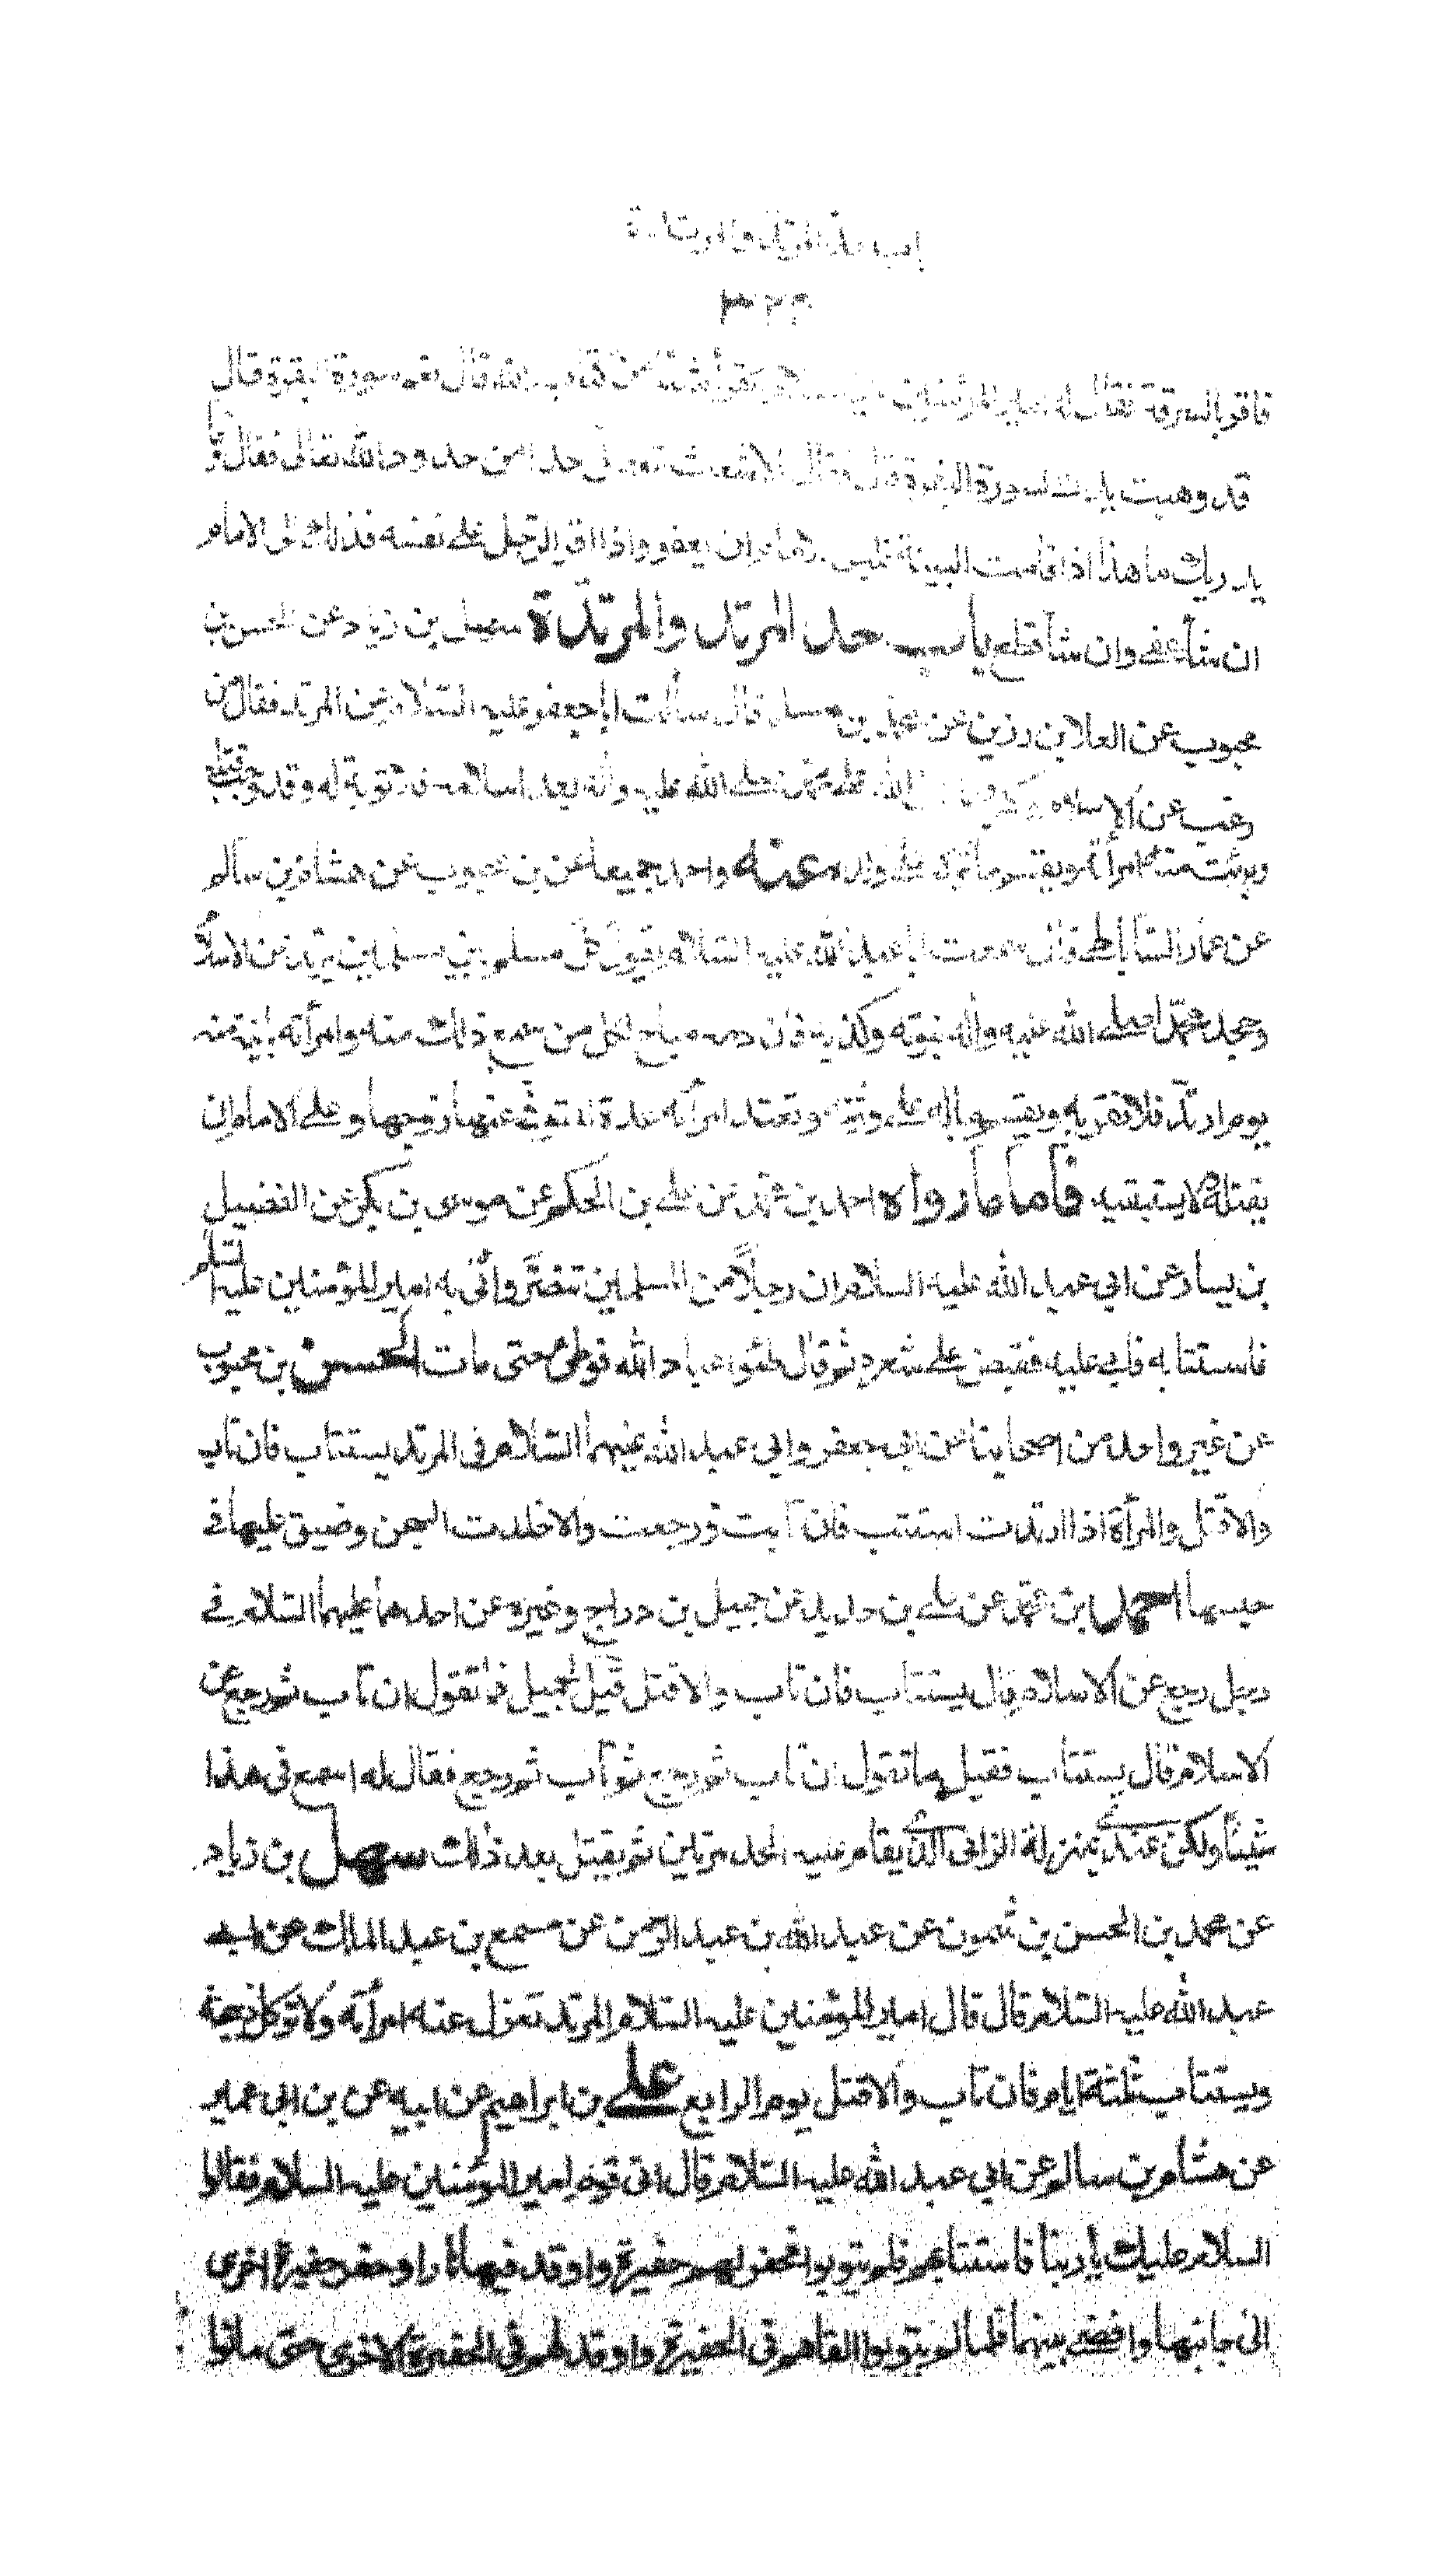 باب حد المرتد والمرتدة
٣٢٣
فاقر بالسرقة فقال له امير المؤمنين عليه السلام تقرأ شيئا من كتاب الله قال نعم سورة البقرة قال
قد وهبت يدك لسورة البقرة قال فقال الاشعث تعطل حدا من حدود الله تعالى فقال وما
يدريك ما هذا اذا قامت البينة فليس للامام ان يعفو واذا اقر الرجل على نفسه فذلك الى الامام
ان شاء عفى وان شاء قطع باب حد المرتد والمرتدة سهيل بن زياد عن الحسن بن
محبوب عن العلا بن رزين عن محمد بن مسلم قال سألت ابا جعفر عليه السلام عن المرتد فقال من
رغب عن الاسلام وكفر بما انزل الله على محمد صلى الله عليه وآله بعد اسلامه فلا توبة له وقد وجب قتله
وبرئت منه امرأته ويقسم ما ترك على ولده عنه واحد جميعا عن بن محبوب عن هشام بن سالم
عن عمار الساباطي قال سمعت ابا عبد الله عليه السلام يقول كل مسلم بين مسلمين يرتد عن الاسلام
وجحد محمدا صلى الله عليه وآله نبوته وكذبه فان دمه مباح لكل من سمع ذلك منه وامرأته باينة منه
يوم ارتد فلا تقربه ويقسم ماله على ورثته وتعتد امرأته عدة المتوفى عنها زوجها وعلى الامام ان
يقتله ولا يستتيبه فاما ما رواه احمد بن محمد عن علي بن الحكم عن موسى بن بكر عن الفضيل
بن يسار عن ابي عبد الله عليه السلام ان رجلا من المسلمين تنصر واتى به امير المؤمنين عليه السلم
فاستتابه فابى عليه فقبض على شعره ثم قال طئوا عباد الله فوطئ حتى مات الحسن بن محبوب
عن غير واحد من اصحابنا عن ابي جعفر وابي عبد الله عليهما السلام في المرتد يستتاب فان تاب
والا قتل والمرأة اذا ارتدت استتيب فان تابت ورجعت والا خلدت السجن وضيق عليها في
حبسها احمد بن محمد عن علي بن حديد عن جميل بن دراج وغيره عن احدهما عليهما السلام في
رجل رجع عن الاسلام قال يستتاب فان تاب والا قتل قيل لجميل فما تقول ان تاب ثم رجع عن
الاسلام قال يستتاب فقيل ما تقول ان تاب ثم رجع ثم تاب ثم رجع فقال لم اسمع في هذا
شيئا ولكن عندي بمنزلة الزاني الذي يقام عليه الحد مرتين ثم يقتل بعد ذلك سهل بن زياد
عن محمد بن الحسن بن شمون عن عبد الله بن عبد الرحمن عن مسمع بن عبد الملك عن ابي
عبد الله عليه السلام قال قال امير المؤمنين عليه السلام المرتد تعزل عنه امرأته ولا توكل ذبيحته
ويستتاب ثلثة ايام فان تاب والا قتل يوم الرابع علي بن ابراهيم عن ابيه عن بن ابي عمير
عن هشام بن سالم عن ابي عبد الله عليه السلام قال اتى قوم امير المؤمنين عليه السلام فقالوا
السلام عليك يا ربنا فاستتابهم فلم يتوبوا فحفر لهم حفيرة واوقد فيها نارا وحفر حفيرة اخرى
الى جانبها وافضى بينهما فلما لم يتوبوا القاهم في الحفيرة واوقد لهم في الحفيرة الاخرى حتى ماتوا